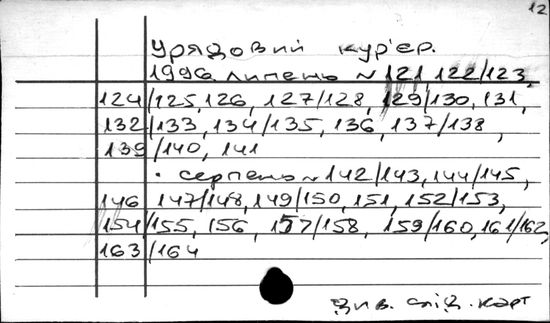 12
Урядовий кур'єр.
1996 липень № 121, 122/123,
124/125, 126, 127/128, 129/130, 131,
132/133, 134/135, 136, 137/138,
139/140, 141
· серпень № 142/143, 144/145,
146 147/148, 149/150, 151, 152/153,
154/155, 156, 157/158, 159/160, 161/162,
163/164
Див. слід. карт